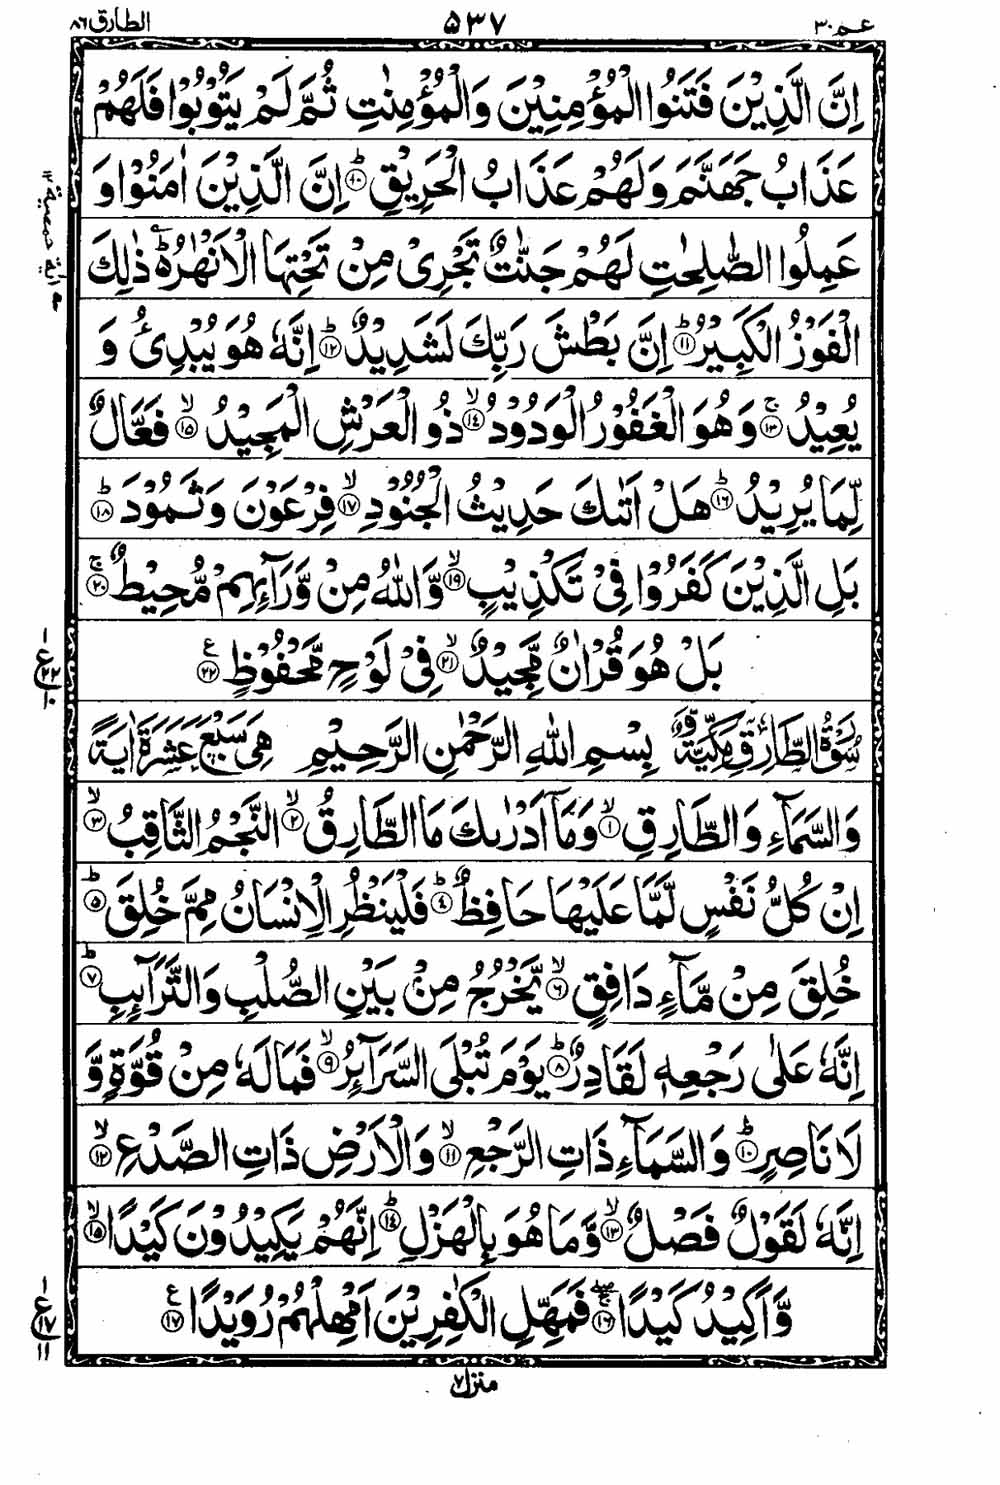 عم ٣٠
٥٣٧
الطارق ٨٦
اِنَّ الَّذِيْنَ فَتَنُوا الْمُؤْمِنِيْنَ وَالْمُؤْمِنٰتِ ثُمَّ لَمْ يَتُوْبُوْا فَلَهُمْ
عَذَابُ جَهَنَّمَ وَلَهُمْ عَذَابُ الْحَرِيْقِ ؕ‏﴿۱۰﴾ اِنَّ الَّذِيْنَ اٰمَنُوْا وَ
عَمِلُوا الصّٰلِحٰتِ لَهُمْ جَنّٰتٌ تَجْرِىْ مِنْ تَحْتِهَا الْاَنْهٰرُ ؕ ذٰلِكَ
الْفَوْزُ الْكَبِيْرُ ؕ‏﴿۱۱﴾ اِنَّ بَطْشَ رَبِّكَ لَشَدِيْدٌ ؕ‏﴿۱۲﴾ اِنَّهٗ هُوَ يُبْدِئُ وَ
يُعِيْدُ ۚ‏﴿۱۳﴾ وَهُوَ الْغَفُوْرُ الْوَدُوْدُ ۙ‏﴿۱۴﴾ ذُو الْعَرْشِ الْمَجِيْدُ ۙ‏﴿۱۵﴾ فَعَّالٌ
لِّمَا يُرِيْدُ ؕ‏﴿۱۶﴾ هَلْ اَتٰىكَ حَدِيْثُ الْجُنُوْدِ ۙ‏﴿۱۷﴾ فِرْعَوْنَ وَثَمُوْدَ ؕ‏﴿۱۸﴾
بَلِ الَّذِيْنَ كَفَرُوْا فِىْ تَكْذِيْبٍ ۙ‏﴿۱۹﴾ وَّاللّٰهُ مِنْ وَّرَآئِهِمْ مُّحِيْطٌ ۚ‏﴿۲۰﴾
بَلْ هُوَ قُرْاٰنٌ مَّجِيْدٌ ۙ‏﴿۲۱﴾ فِىْ لَوْحٍ مَّحْفُوْظٍ ﴿۲۲﴾ ع
سُوْرَةُ الطَّارِقِ مَكِّيَّةٌ بِسْمِ اللّٰهِ الرَّحْمٰنِ الرَّحِيْمِ هِىَ سَبْعَ عَشَرَةَ اٰيَةً
وَالسَّمَآءِ وَالطَّارِقِ ۙ‏﴿۱﴾ وَمَآ اَدْرٰىكَ مَا الطَّارِقُ ۙ‏﴿۲﴾ النَّجْمُ الثَّاقِبُ ۙ‏﴿۳﴾
اِنْ كُلُّ نَفْسٍ لَّمَّا عَلَيْهَا حَافِظٌ ؕ‏﴿۴﴾ فَلْيَنْظُرِ الْاِنْسَانُ مِمَّ خُلِقَ ؕ‏﴿۵﴾
خُلِقَ مِنْ مَّآءٍ دَافِقٍ ۙ‏﴿۶﴾ يَّخْرُجُ مِنْۢ بَيْنِ الصُّلْبِ وَالتَّرَآئِبِ ؕ‏﴿۷﴾
اِنَّهٗ عَلٰى رَجْعِهٖ لَقَادِرٌ ؕ‏﴿۸﴾ يَوْمَ تُبْلَى السَّرَآئِرُ ۙ‏﴿۹﴾ فَمَا لَهٗ مِنْ قُوَّةٍ وَّ
لَا نَاصِرٍ ؕ‏﴿۱۰﴾ وَالسَّمَآءِ ذَاتِ الرَّجْعِ ۙ‏﴿۱۱﴾ وَالْاَرْضِ ذَاتِ الصَّدْعِ ۙ‏﴿۱۲﴾
اِنَّهٗ لَقَوْلٌ فَصْلٌ ۙ‏﴿۱۳﴾ وَّمَا هُوَ بِالْهَزْلِ ؕ‏﴿۱۴﴾ اِنَّهُمْ يَكِيْدُوْنَ كَيْدًا ۙ‏﴿۱۵﴾
وَّاَكِيْدُ كَيْدًا ‏﴿۱۶﴾ فَمَهِّلِ الْكٰفِرِيْنَ اَمْهِلْهُمْ رُوَيْدًا ﴿۱۷﴾ ع
منزل ٧